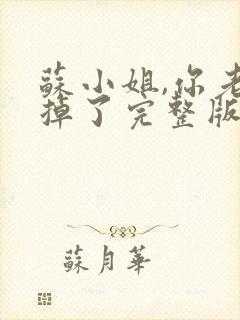 蘇小姐,你老
掉了完整版
蘇月華